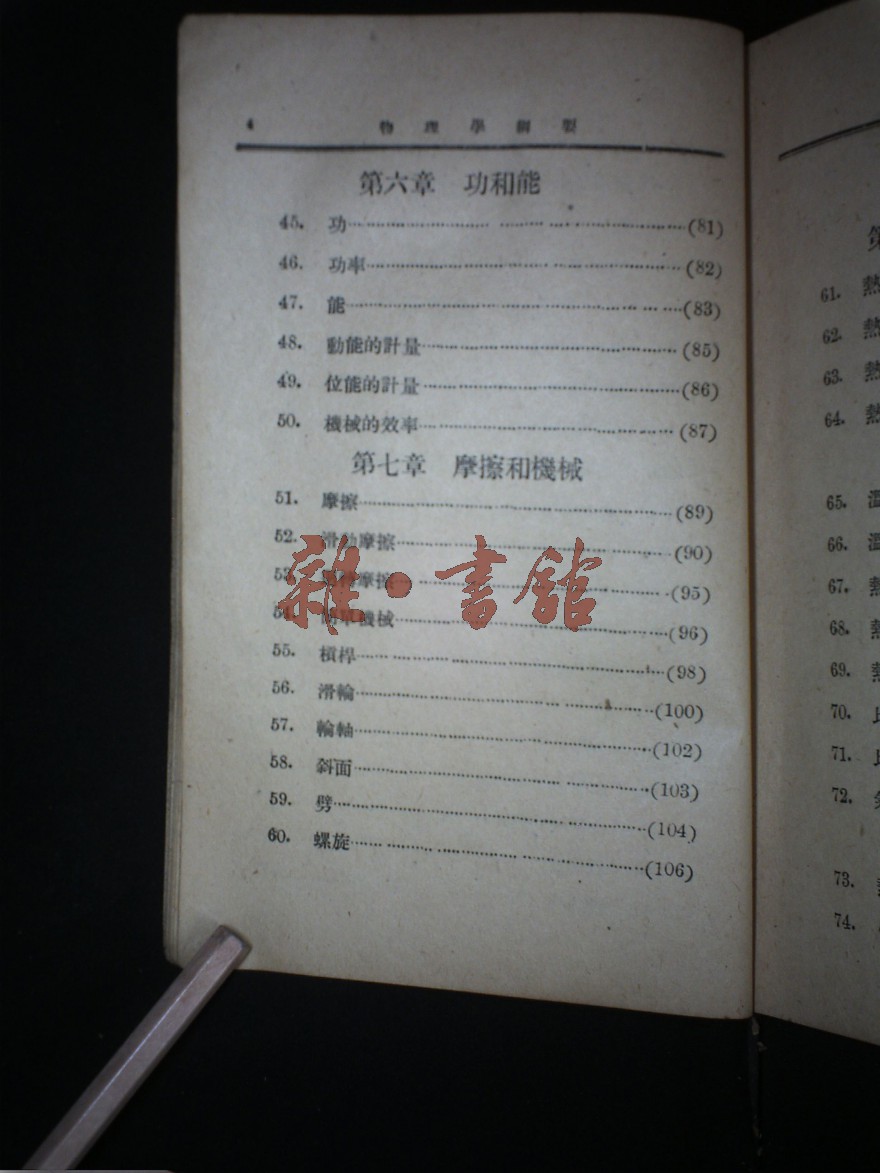 4 物理學綱要
第六章 功和能
45. 功 (81)
46. 功率 (82)
47. 能 (83)
48. 動能的計量 (85)
49. 位能的計量 (86)
50. 機械的效率 (87)
第七章 摩擦和機械
51. 摩擦 (89)
52. 滑動摩擦 (90)
53. 摩擦 (95)
54. 簡單機械 (96)
55. 槓桿 (98)
56. 滑輪 (100)
57. 輪軸 (102)
58. 斜面 (103)
59. 劈 (104)
60. 螺旋 (106)
雜·書館
第
61. 熱
62. 熱
63. 熱
64. 熱
65. 溫
66. 溫
67. 熱
68. 熱
69. 熱
70. 比
71. 比
72.
73.
74.